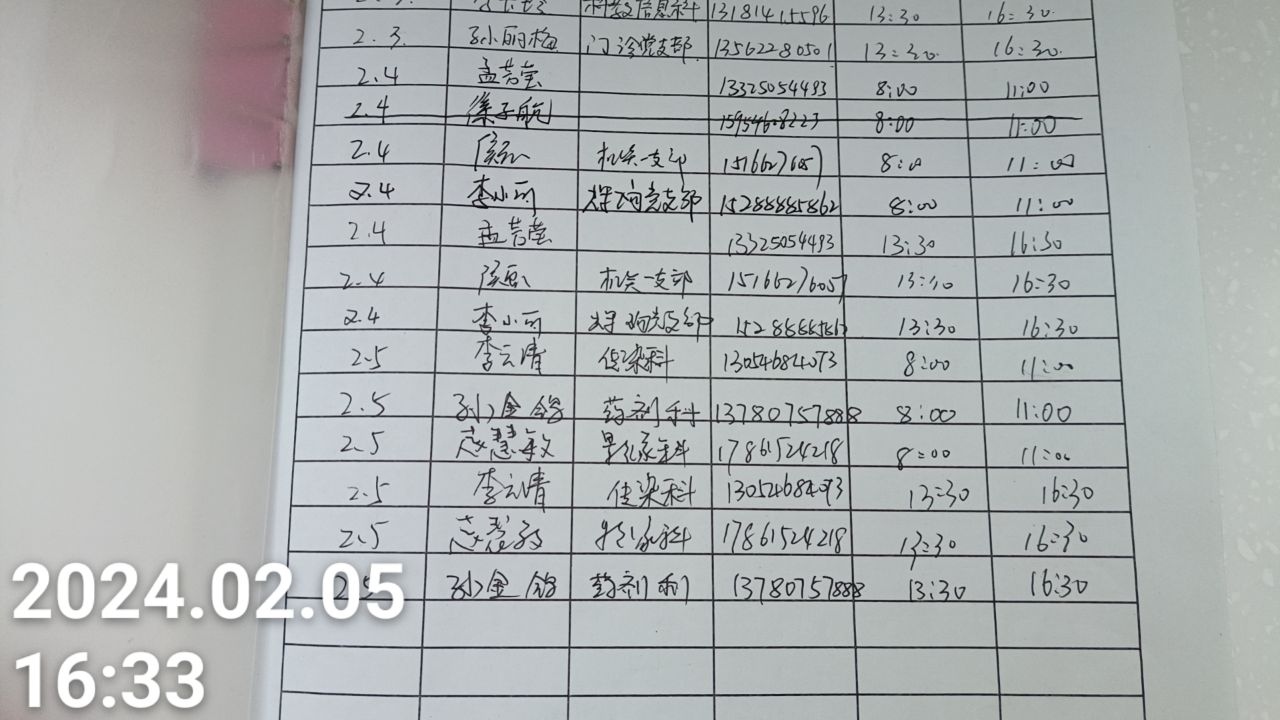 科教信息科 13181415596 13:30 16:30
2.3. 孙丽梅 门诊党支部 13562280501 13:30 16:30
2.4 孟芳莹 13325054493 8:00 11:00
2.4 徐子航 15954608223 8:00 11:00
2.4 机关一支部 15166276057 8:00 11:00
2.4 李小丽 党支部 15288885862 8:00 11:00
2.4 孟芳莹 13325054493 13:30 16:30
2.4 机关一支部 15166276057 13:30 16:30
2.4 李小丽 13:30 16:30
2.5 李云清 传染科 13054684093 8:00 11:00
2.5 孙金 药剂科 13780757888 8:00 11:00
2.5 慧敏 17861524218 8:00 11:00
2.5 李云清 传染科 13054684093 13:30 16:30
2.5 17861524218 13:30 16:30
2.5 孙金 药剂科 13780757888 13:30 16:30
2024.02.05
16:33